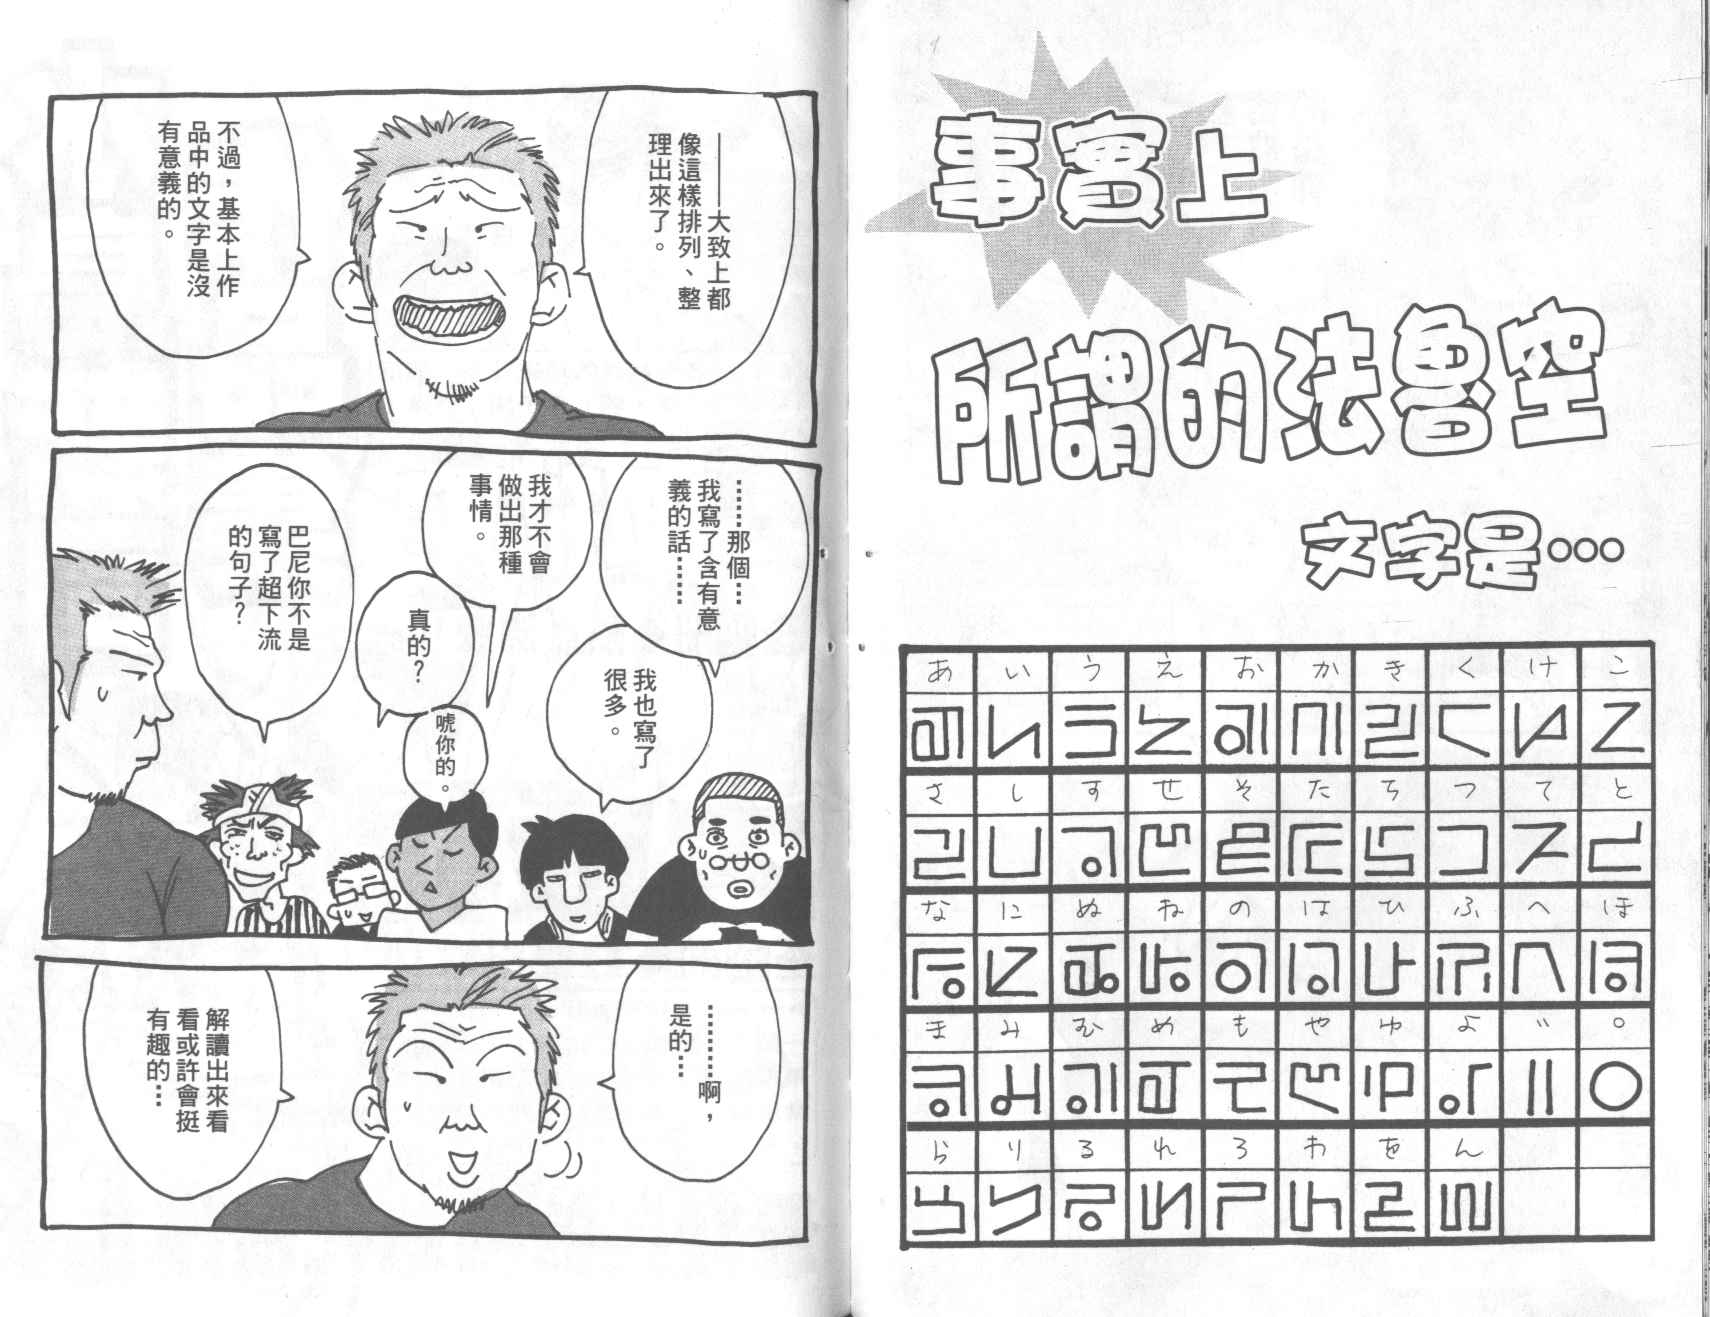 事實上
所謂的法魯空
文字是…
あ い う え お か き く け こ
さ し す せ そ た ち つ て と
な に ぬ ね の は ひ ふ へ ほ
ま み む め も や ゆ よ ゛ ゜
ら り る れ ろ わ を ん
——大致上都
像這樣排列、整
理出來了。
不過，基本上作
品中的文字是沒
有意義的。
……那個…
我寫了含有意
義的話……
我也寫了
很多。
我才不會
做出那種
事情。
唬你的。
真的？
巴尼你不是
寫了超下流
的句子？
…………啊，
是的…
解讀出來看
看或許會挺
有趣的…